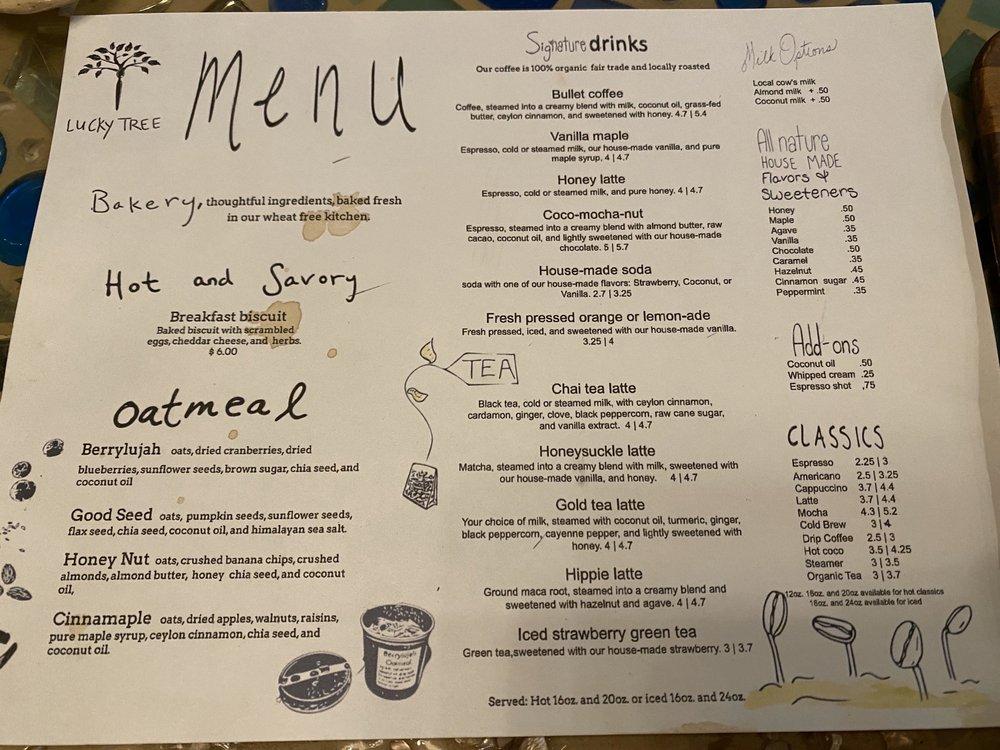 LUCKY TREE
Menu
Bakery, thoughtful ingredients, baked fresh
in our wheat free kitchen.
Hot and Savory
Breakfast biscuit
Baked biscuit with scrambled
eggs, cheddar cheese, and herbs.
$ 6.00
oatmeal
Berrylujah oats, dried cranberries, dried
blueberries, sunflower seeds, brown sugar, chia seed, and
coconut oil
Good Seed oats, pumpkin seeds, sunflower seeds,
flax seed, chia seed, coconut oil, and himalayan sea salt.
Honey Nut oats, crushed banana chips, crushed
almonds, almond butter, honey chia seed, and coconut
oil,
Cinnamaple oats, dried apples, walnuts, raisins,
pure maple syrup, ceylon cinnamon, chia seed, and
coconut oil.
Berrylujah
Oatmeal
Signature drinks
Our coffee is 100% organic fair trade and locally roasted
Bullet coffee
Coffee, steamed into a creamy blend with milk, coconut oil, grass-fed
butter, ceylon cinnamon, and sweetened with honey. 4.7 | 5.4
Vanilla maple
Espresso, cold or steamed milk, our house-made vanilla, and pure
maple syrup. 4 | 4.7
Honey latte
Espresso, cold or steamed milk, and pure honey. 4 | 4.7
Coco-mocha-nut
Espresso, steamed into a creamy blend with almond butter, raw
cacao, coconut oil, and lightly sweetened with our house-made
chocolate. 5 | 5.7
House-made soda
soda with one of our house-made flavors: Strawberry, Coconut, or
Vanilla. 2.7 | 3.25
Fresh pressed orange or lemon-ade
Fresh pressed, iced, and sweetened with our house-made vanilla.
3.25 | 4
TEA
Chai tea latte
Black tea, cold or steamed milk, with ceylon cinnamon,
cardamon, ginger, clove, black peppercorn, raw cane sugar,
and vanilla extract. 4 | 4.7
Honeysuckle latte
Matcha, steamed into a creamy blend with milk, sweetened with
our house-made vanilla, and honey. 4 | 4.7
Gold tea latte
Your choice of milk, steamed with coconut oil, turmeric, ginger,
black peppercorn, cayenne pepper, and lightly sweetened with
honey. 4 | 4.7
Hippie latte
Ground maca root, steamed into a creamy blend and
sweetened with hazelnut and agave. 4 | 4.7
Iced strawberry green tea
Green tea, sweetened with our house-made strawberry. 3 | 3.7
Served: Hot 16oz. and 20oz. or iced 16oz. and 24oz.
Milk Options
Local cow's milk
Almond milk + .50
Coconut milk + .50
All nature
HOUSE MADE
Flavors &
Sweeteners
Honey .50
Maple .50
Agave .35
Vanilla .35
Chocolate .50
Caramel .35
Hazelnut .45
Cinnamon sugar .45
Peppermint .35
Add-ons
Coconut oil .50
Whipped cream .25
Espresso shot ,75
CLASSICS
Espresso 2.25 | 3
Americano 2.5 | 3.25
Cappuccino 3.7 | 4.4
Latte 3.7 | 4.4
Mocha 4.3 | 5.2
Cold Brew 3 | 4
Drip Coffee 2.5 | 3
Hot coco 3.5 | 4.25
Steamer 3 | 3.5
Organic Tea 3 | 3.7
12oz. 16oz. and 20oz available for hot classics
16oz. and 24oz available for iced